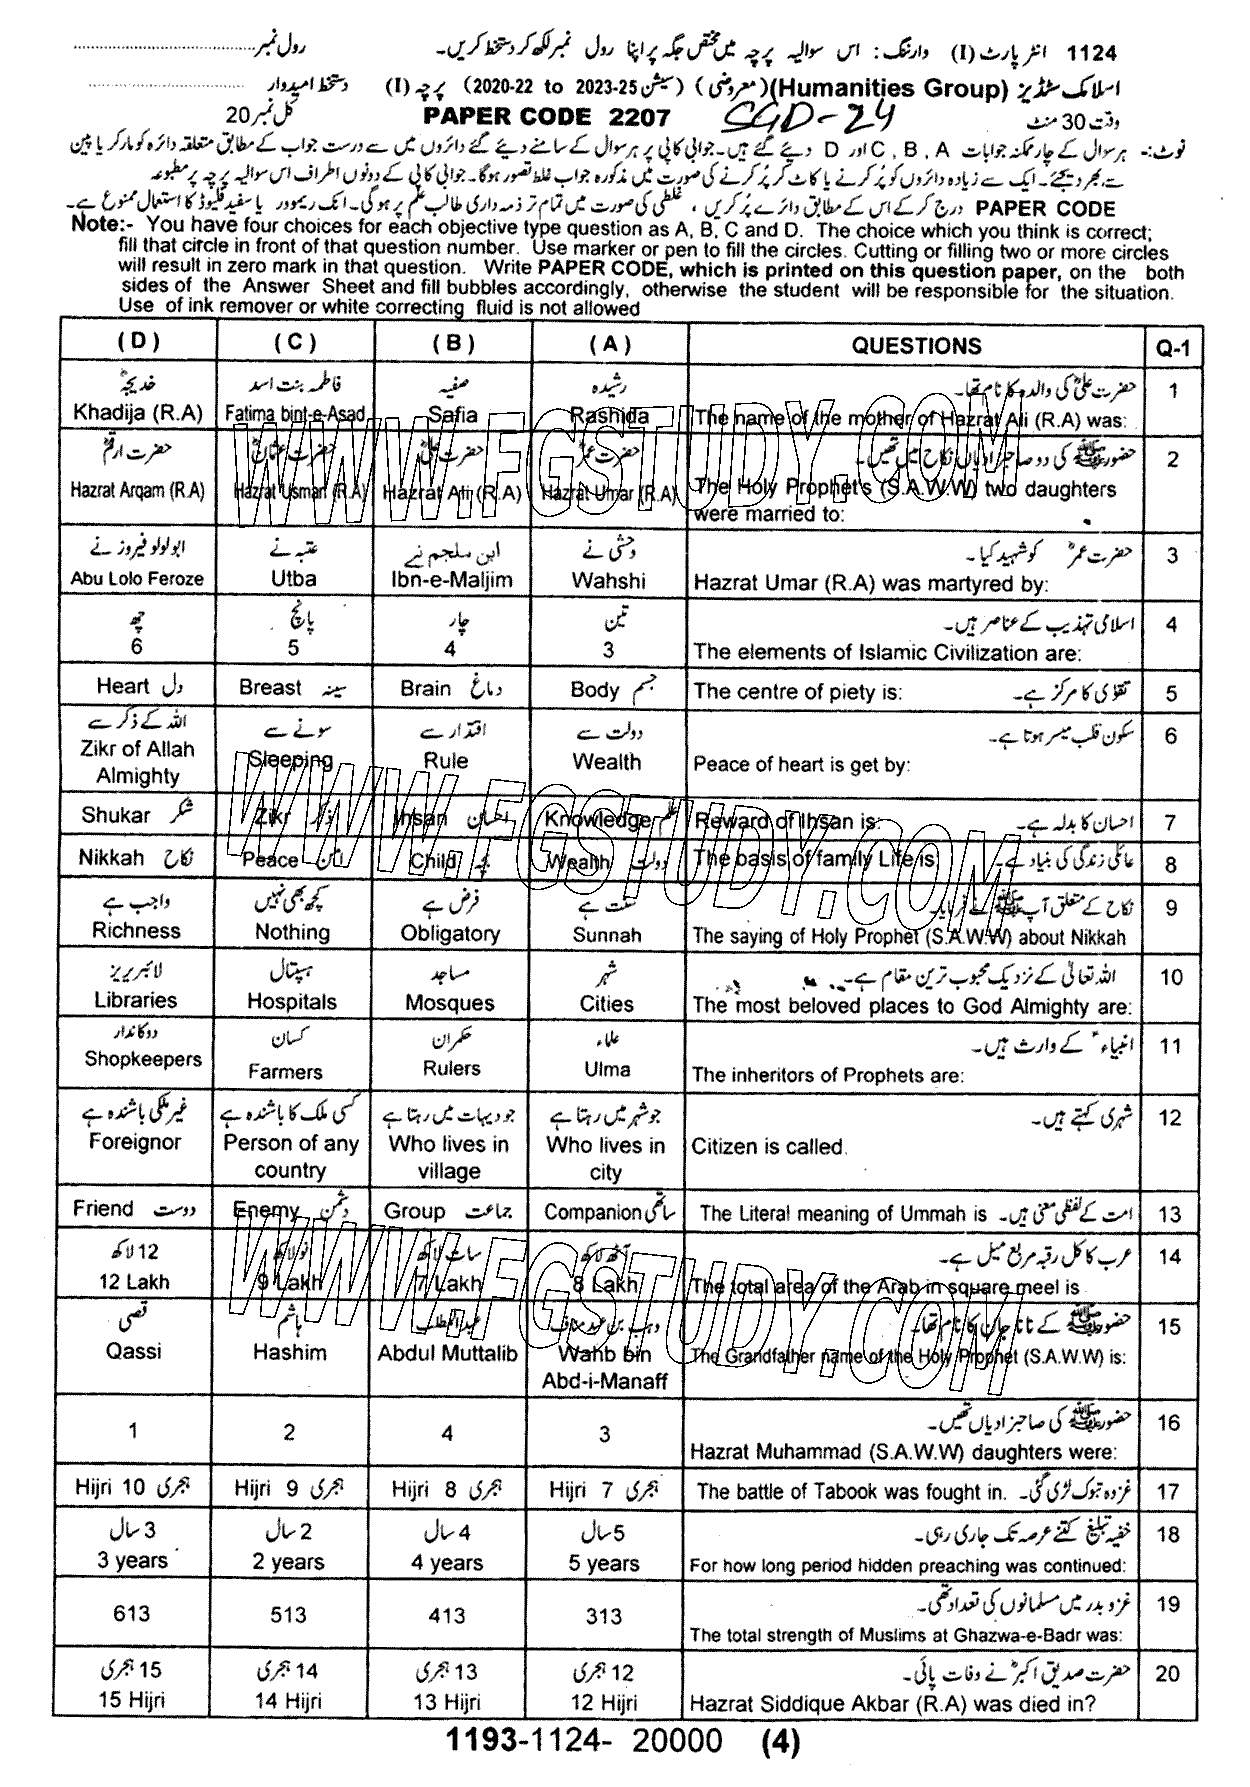 1124 انٹر پارٹ (I) وارننگ: اس سوالیہ پرچہ میں مختص جگہ پر اپنا رول نمبر لکھ کر دستخط کریں۔ رول نمبر
اسلامک سٹڈیز (Humanities Group) (معروضی) (سیشن 2020-22 to 2023-25) پرچہ (I) دستخط امیدوار
وقت 30 منٹ SGD-24 PAPER CODE 2207 کل نمبر 20
نوٹ:- ہر سوال کے چار ممکنہ جوابات A , B , C اور D دیئے گئے ہیں۔ جوابی کاپی پر ہر سوال کے سامنے دیئے گئے دائروں میں سے درست جواب کے مطابق متعلقہ دائرہ کو مارکر یا پین
سے بھر دیجئے۔ ایک سے زیادہ دائروں کو پُر کرنے یا کاٹ کر پُر کرنے کی صورت میں مذکورہ جواب غلط تصور ہوگا۔ جوابی کاپی کے دونوں اطراف اس سوالیہ پرچہ پر مطبوعہ
PAPER CODE درج کر کے اس کے مطابق دائرے پُر کریں ، غلطی کی صورت میں تمام تر ذمہ داری طالب علم پر ہوگی۔ انک ریموور یا سفید فلیوڈ کا استعمال ممنوع ہے۔
Note:- You have four choices for each objective type question as A, B, C and D. The choice which you think is correct;
fill that circle in front of that question number. Use marker or pen to fill the circles. Cutting or filling two or more circles
will result in zero mark in that question. Write PAPER CODE, which is printed on this question paper, on the both
sides of the Answer Sheet and fill bubbles accordingly, otherwise the student will be responsible for the situation.
Use of ink remover or white correcting fluid is not allowed
(D) (C) (B) (A) QUESTIONS Q-1
خدیجہؓ فاطمہ بنت اسد صفیہ رشیدہ حضرت علیؓ کی والدہ کا نام تھا۔ 1
Khadija (R.A) Fatima bint-e-Asad Safia Rashida The name of the mother of Hazrat Ali (R.A) was:
حضرت ارقمؓ حضرت عثمانؓ حضرت علیؓ حضرت عمرؓ حضورﷺ کی دو صاحبزادیاں نکاح میں تھیں۔ 2
Hazrat Arqam (R.A) Hazrat Usman (R.A) Hazrat Ali (R.A) Hazrat Umar (R.A) The Holy Prophet's (S.A.W.W) two daughters
were married to:
ابولولو فیروز نے عتبہ نے ابن ملجم نے وحشی نے حضرت عمرؓ کو شہید کیا۔ 3
Abu Lolo Feroze Utba Ibn-e-Maljim Wahshi Hazrat Umar (R.A) was martyred by:
چھ پانچ چار تین اسلامی تہذیب کے عناصر ہیں۔ 4
6 5 4 3 The elements of Islamic Civilization are:
Heart دل Breast سینہ Brain دماغ Body جسم The centre of piety is: تقوٰی کا مرکز ہے۔ 5
اللہ کے ذکر سے سونے سے اقتدار سے دولت سے سکون قلب میسر ہوتا ہے۔ 6
Zikr of Allah Almighty Sleeping Rule Wealth Peace of heart is get by:
Shukar شکر Zikr ذکر Ihsan احسان Knowledge علم Reward of Ihsan is: احسان کا بدلہ ہے۔ 7
Nikkah نکاح Peace امن Child بچہ Wealth دولت The basis of family Life is: عائلی زندگی کی بنیاد ہے۔ 8
واجب ہے کچھ بھی نہیں فرض ہے سنت ہے نکاح کے متعلق آپﷺ نے فرمایا۔ 9
Richness Nothing Obligatory Sunnah The saying of Holy Prophet (S.A.W.W) about Nikkah
لائبریریز ہسپتال مساجد شہر اللہ تعالٰی کے نزدیک محبوب ترین مقام ہے۔ 10
Libraries Hospitals Mosques Cities The most beloved places to God Almighty are:
دوکاندار کسان حکمران علماء انبیاءؑ کے وارث ہیں۔ 11
Shopkeepers Farmers Rulers Ulma The inheritors of Prophets are:
غیر ملکی باشندہ ہے کسی ملک کا باشندہ ہے جو دیہات میں رہتا ہے جو شہر میں رہتا ہے شہری کہتے ہیں۔ 12
Foreignor Person of any country Who lives in village Who lives in city Citizen is called.
Friend دوست Enemy دشمن Group جماعت Companion ساتھی The Literal meaning of Ummah is امت کے لفظی معنی ہیں۔ 13
12 لاکھ نو لاکھ سات لاکھ آٹھ لاکھ عرب کا کل رقبہ مربع میل ہے۔ 14
12 Lakh 9 Lakh 7 Lakh 8 Lakh The total area of the Arab in square meel is
قصی ہاشم عبدالمطلب وہب بن عبد مناف حضورﷺ کے نانا جان کا نام تھا۔ 15
Qassi Hashim Abdul Muttalib Wahb bin Abd-i-Manaff The Grandfather name of the Holy Prophet (S.A.W.W) is:
1 2 4 3 حضورﷺ کی صاحبزادیاں تھیں۔ 16
Hazrat Muhammad (S.A.W.W) daughters were:
Hijri 10 ہجری Hijri 9 ہجری Hijri 8 ہجری Hijri 7 ہجری The battle of Tabook was fought in. غزوہ تبوک لڑی گئی۔ 17
3 سال 2 سال 4 سال 5 سال خفیہ تبلیغ کتنے عرصہ تک جاری رہی۔ 18
3 years 2 years 4 years 5 years For how long period hidden preaching was continued:
613 513 413 313 غزوہ بدر میں مسلمانوں کی تعداد تھی۔ 19
The total strength of Muslims at Ghazwa-e-Badr was:
15 ہجری 14 ہجری 13 ہجری 12 ہجری حضرت صدیق اکبرؓ نے وفات پائی۔ 20
15 Hijri 14 Hijri 13 Hijri 12 Hijri Hazrat Siddique Akbar (R.A) was died in?
1193-1124- 20000 (4)
WWW.FGSTUDY.COM
WWW.FGSTUDY.COM
WWW.FGSTUDY.COM